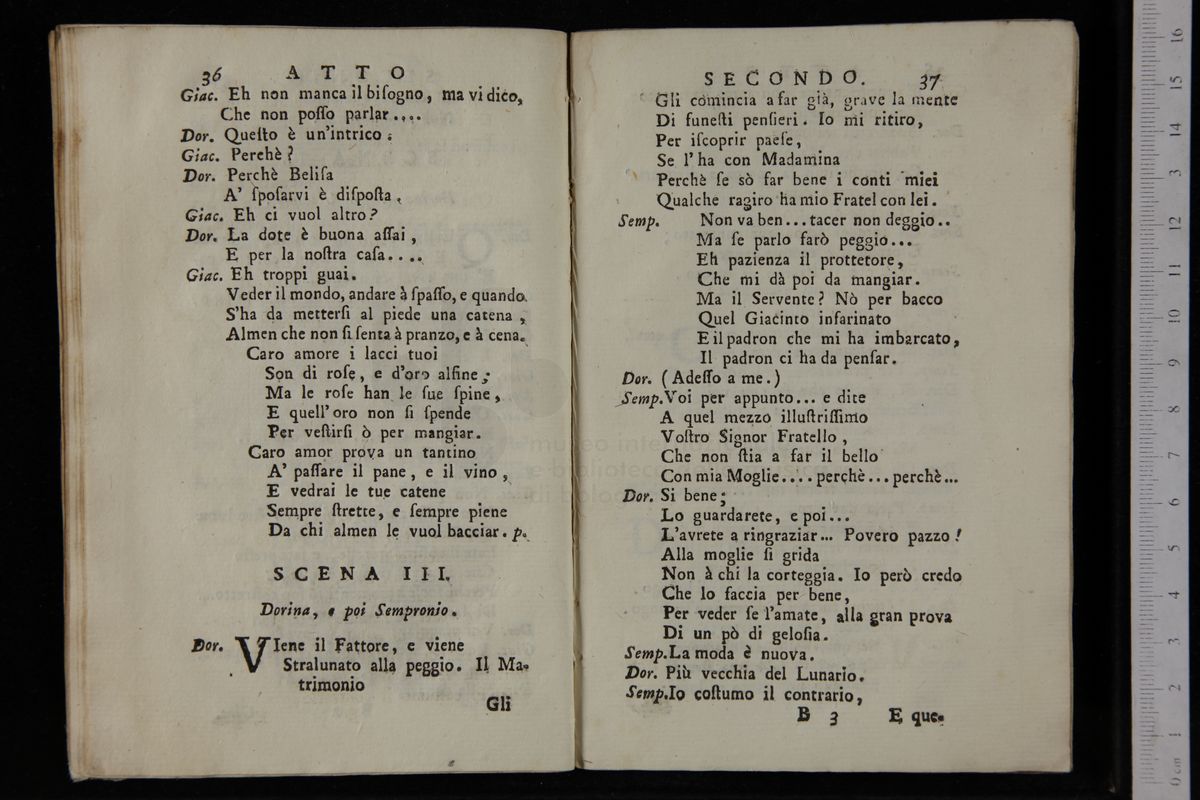 36 ATTO
Giac. Eh non manca il biſogno, ma vi dico,
Che non poſſo parlar....
Dor. Queſto è un'intrico.
Giac. Perchè?
Dor. Perchè Beliſa
A' ſpoſarvi è diſpoſta.
Giac. Eh ci vuol altro?
Dor. La dote è buona aſſai,
E per la noſtra caſa....
Giac. Eh troppi guai.
Veder il mondo, andare à ſpaſſo, e quando
S'ha da metterſi al piede una catena,
Almen che non ſi ſenta à pranzo, e à cena.
Caro amore i lacci tuoi
Son di roſe, e d'oro alfine;
Ma le roſe han le ſue ſpine,
E quell'oro non ſi ſpende
Per veſtirſi ò per mangiar.
Caro amor prova un tantino
A' paſſare il pane, e il vino,
E vedrai le tue catene
Sempre ſtrette, e ſempre piene
Da chi almen le vuol bacciar. p.
SCENA III.
Dorina, e poi Sempronio.
Dor. VIene il Fattore, e viene
Stralunato alla peggio. Il Ma-
trimonio
Gli
SECONDO. 37
Gli comincia a far già, grave la mente
Di funeſti penſieri. Io mi ritiro,
Per iſcoprir paeſe,
Se l'ha con Madamina
Perchè ſe sò far bene i conti miei
Qualche ragiro ha mio Fratel con lei.
Semp. Non va ben... tacer non deggio..
Ma ſe parlo farò peggio...
Eh pazienza il prottetore,
Che mi dà poi da mangiar.
Ma il Servente? Nò per bacco
Quel Giacinto infarinato
E il padron che mi ha imbarcato,
Il padron ci ha da penſar.
Dor. (Adeſſo a me.)
Semp. Voi per appunto... e dite
A quel mezzo illuſtriſſimo
Voſtro Signor Fratello,
Che non ſtia a far il bello
Con mia Moglie.... perchè... perchè...
Dor. Si bene;
Lo guardarete, e poi...
L'avrete a ringraziar... Povero pazzo!
Alla moglie ſi grida
Non à chi la corteggia. Io però credo
Che lo faccia per bene,
Per veder ſe l'amate, alla gran prova
Di un pò di geloſia.
Semp. La moda è nuova.
Dor. Più vecchia del Lunario.
Semp. Io coſtumo il contrario,
B 3 E que-